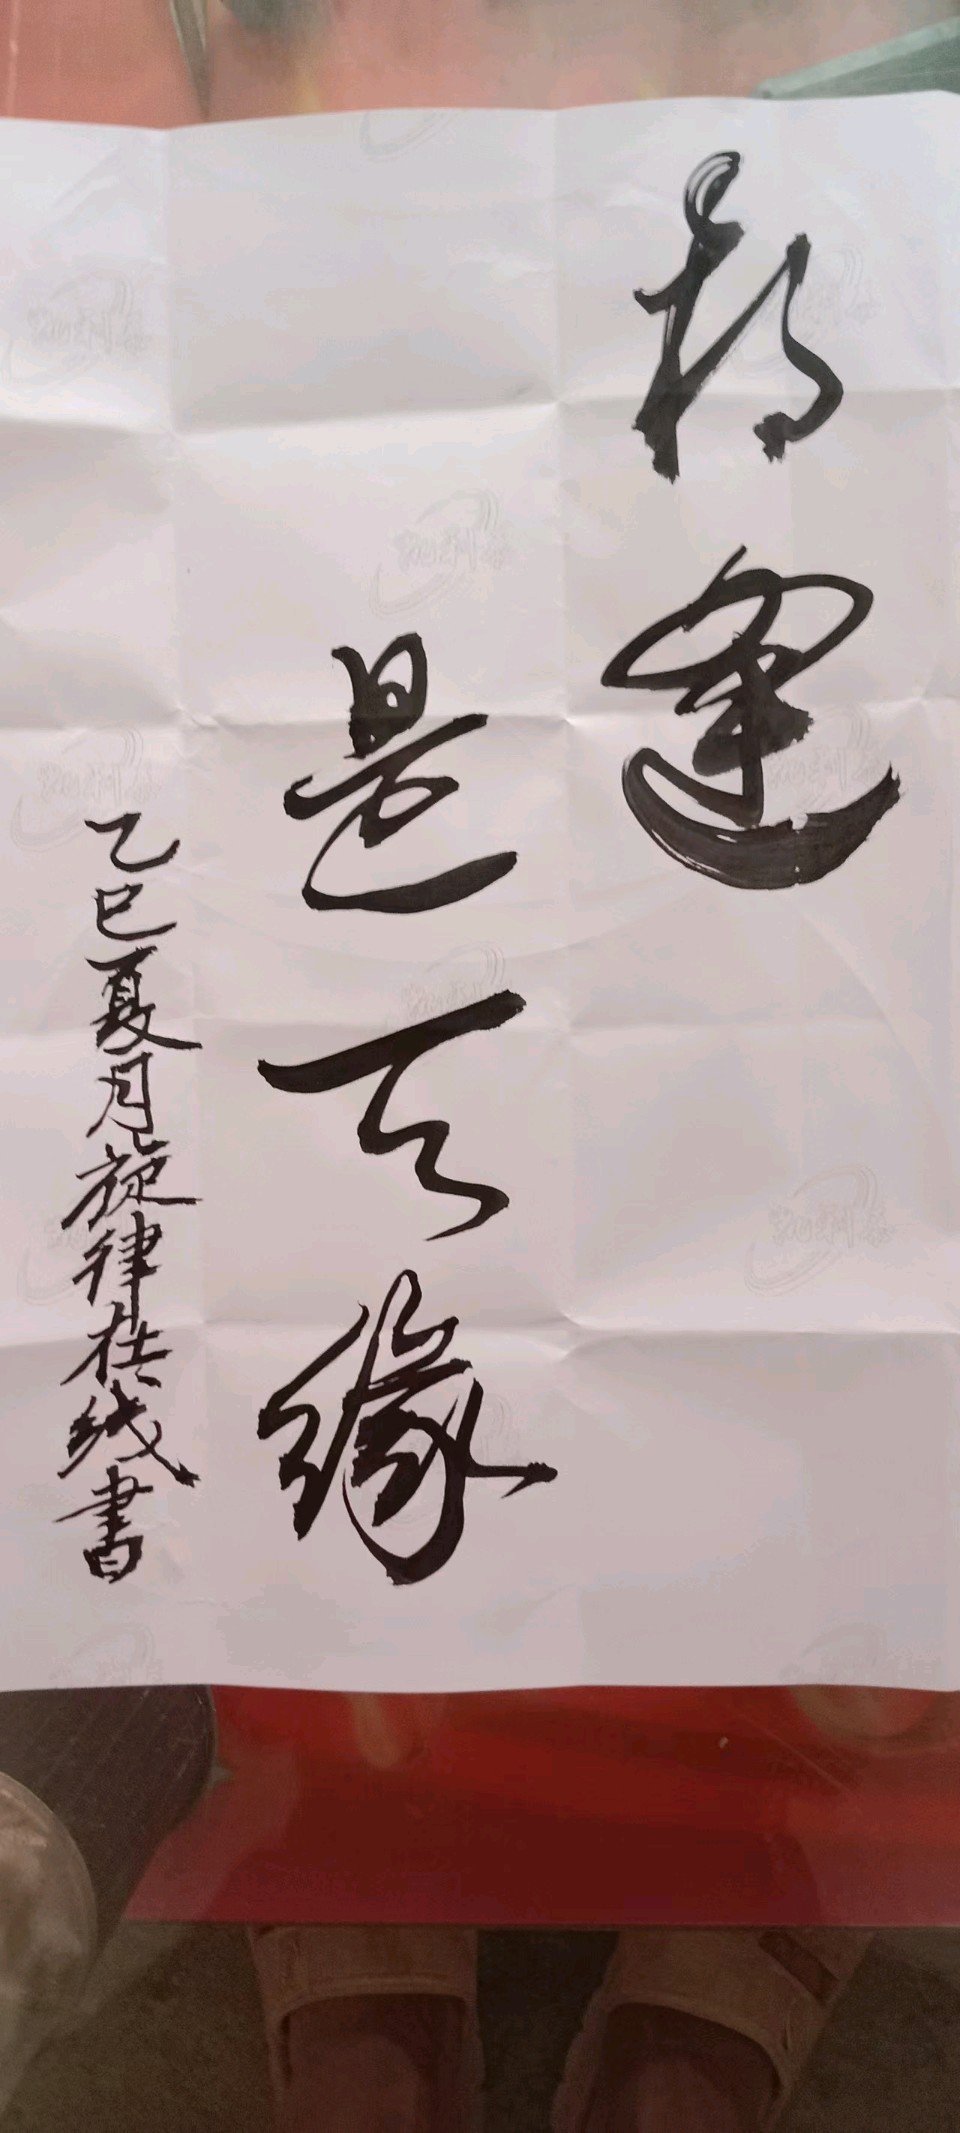 相逢
是天缘
乙巳夏月旋律在线書